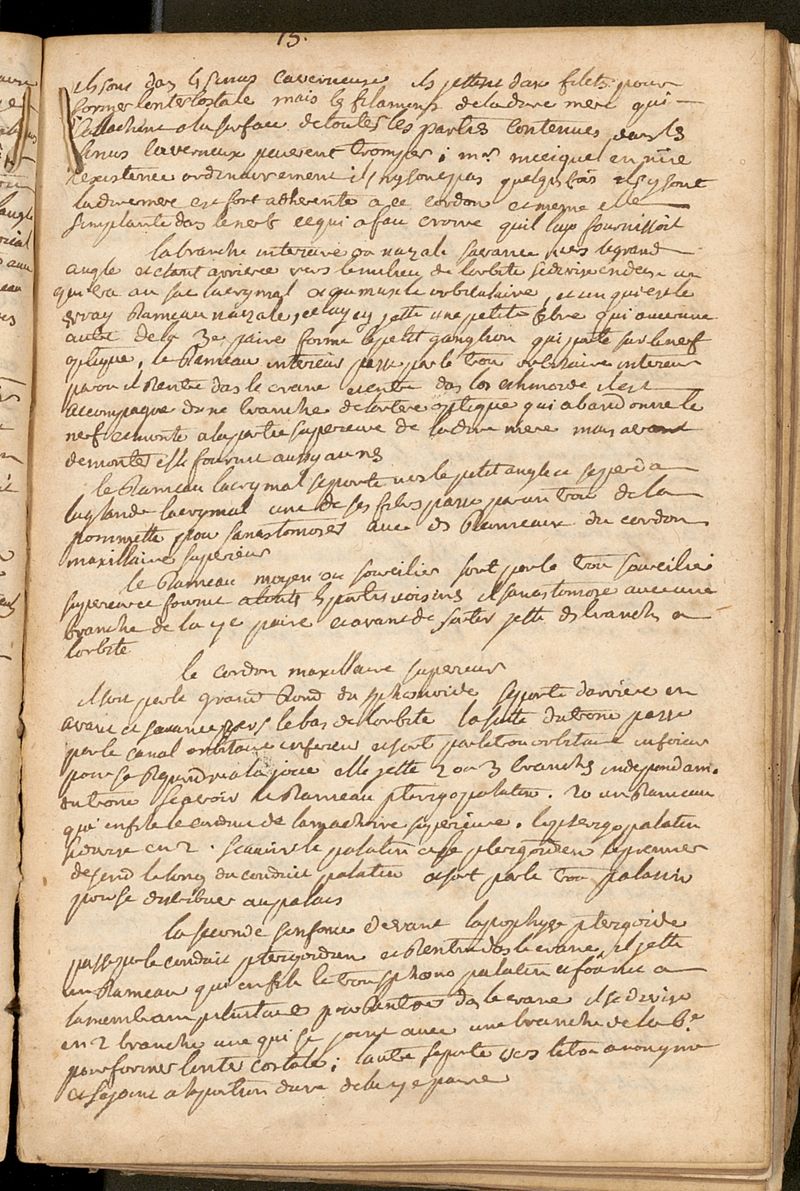 15.
ils sont das ls sinus caverneuse ils jettent deux filets pour
former lintercostale mais ls filamens de la dure mere qui
sattachent a la surface de toutes les parties contenues dans ls
sinus caverneux peuvent tromper; mr en nire
lexistence ordinairement ils ny sont pas quelques fois ils y sont
la dure mere est fort adherente a ce cordon et meme elle
simplante das le nerf ce qui a fait croire quil luy fournissoit
la branche interieure ou nazale savance vers le grand
angle etant arrivée vers le milieu de lorbite se divise en deux un
qui va au sac lacrymal et au muscle orbiculaire, et un qui est le
vray Rameau nazale, celuy cy jette une petite fibre qui avec une
autre de la 3e paire forme le petit ganglion qui porte sur le nerf
optique, le Rameau interieur passe par le trou orbitaire interieur
par ou il Rentre das le crane et entre das los ethmoide il est
accompagne dune branche de lartere optique qui abandonne le
nerf et monte a la partie superieure de la dure mere mais avant
de monter il fournit au nés
le Rameau lacrymal se porte vers le petit angle et se perd a
la glande lacrymal une de ses filets passe par un trou de la
pommette pour sanastomoser avec ds Rameaux du cordon
maxillaire superieur
le Rameau moyen ou sourcilier sort par le trou sourcilié
superieur et fournit a toutes ls parties voisines il sanastomose avec une
branche de la 7e paire et avant de sortir jette ds branches a
lorbite
le cordon maxillaire superieur
il sort par le grand Rond du sphenoide se porte darriere en
avant et savance vers le bas de lorbite la suitte du tronc passe
par le canal orbitaire inferieur et sort par le trou orbitaire inferieur
pour se Repandre a la joüe elle jette 2 ou 3 branches independam.
du tronc scavoir le Rameau pterygopalatin. 2o un Rameau
qui enfile le conduit de la machoire superieure. le pterygopalatin
se divise en 2. scavoir le palatin et le pterigoidien le premier
descend le long du conduit palatin et sort par le trou palatin
pour se distribuer au palais
la seconde senfonce devant lapophyse pterigoide
passe par le conduit pterigoidien et Rentre das le crane, il jette
un Rameau qui enfile le trou spheno palatin et fournit a
la membrane pituitaire pour Rentrer das le crane il se divise
en 2 branche une qui se joint avec une branche de la 6e
pour former linter costale; lautre se porte vers le trou anonyme
et se joint a la portion dure de la 7e paire